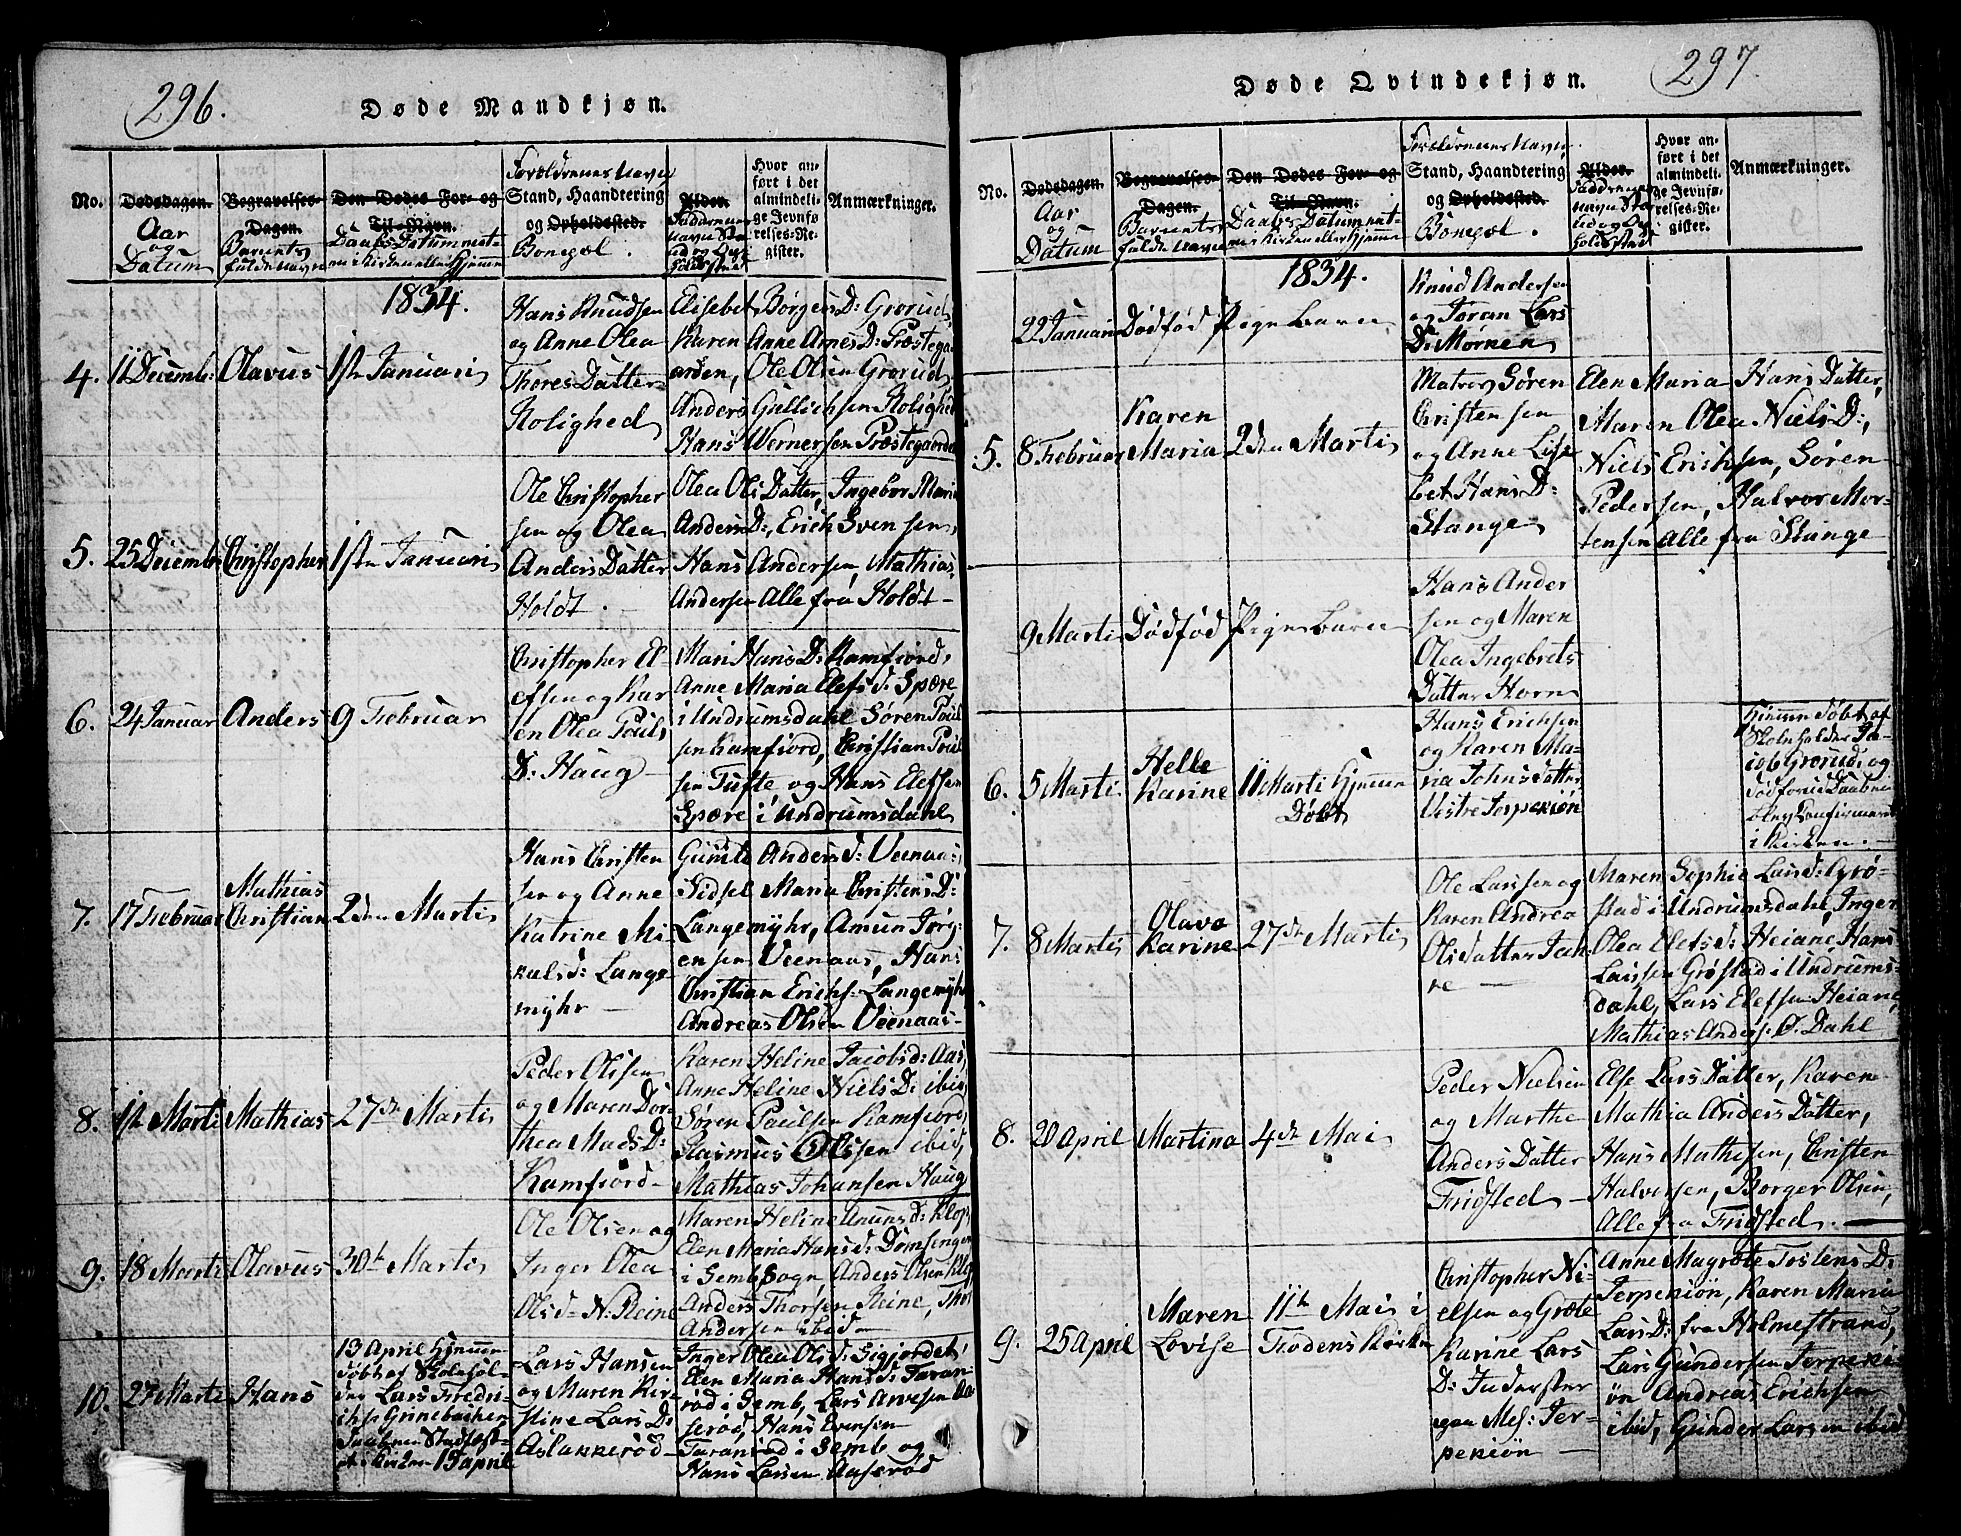 296.
Døde Mandkjøn.
No.
Dødsdagen.
Aar
og
Datum
Begravelses-
Dagen.
Barnets
fulde Navn
Den Dødes For- og
Til-Navn.
Daabs-Datum net-
Kirken eller Hjemme
Forældrenes Navn
Stand, Haandtering
og Opholdssted.
Bopæl.
Alder.
Faddernes
Navn Sta
Hvor an-
ført i det
almindeli-
ge Jevnfø
relses-Re-
gister.
Anmærkninger.
1834.
4. 11 Decemb: Olavus 1ste Januari
Hans Knudsen
og Anne Olea
Thores Datter
Rolighed
Elisebet Børges D: Grorud,
Karen Anne Arnes D: Præstega-
arden, Ole Olsen Grorud,
Anders Gullichsen Rolighed
Hans Wernersen Præstegaarden
5. 25 Decemb: Christopher 1ste Januari
Ole Christopher
sen og Olea
Anders Datter
Holdt.
Olea Ols Datter, Ingebor Maria
Anders D:, Erich Svensen,
Hans Andersen, Mathias
Andersen Alle fra Holdt
6. 24 Januar Anders 9 Februar
Christopher El-
efsen og Kar
en Olea Pouls
D: Haug
Mari Hans D: Kamfiord,
Anne Maria Elefs d: Spære
i Undrumsdahl Søren Poul
sen Kamfiord, Christian Poul
sen Tufte og Hans Elefsen
Spære i Undrumsdahl
7. 17 Februar Mathias
Christian 2den Marti
Hans Christen
sen og Anne
Katrine Mi
kelsd: Lange
myhr
Gunild Anders d: Veenaas,
Sidsel Maria Christens D:
Langemyhr, Amun Jørg-
ensen Veenaas, Hans
Christian Erichs: Langemyhr
Andreas Olsen Veenaas
8. 1ste Marti Mathias 27de Marti
Peder Olssen
og Maren Dor
thea Mads D:
Kamfiord
Karen Heline Jacobs d: Aas,
Anne Heline Niels D: ibid,
Søren Paulsen Kamfiord,
Rasmus Olssen ibid,
Mathias Johansen Haug
9. 18 Marti Olavus 30te Marti
Ole Olsen og
Inger Olea
Olsd: N: Reine
Maren Heline Anuns D: Klop
Elen Maria Hans d:
i Semb Sogn, Anders Olsen Klop
Anders Thorsen Reine, Thor
Andersen ibid
10. 27 Marti Hans
13 April Hjemme
døbt af Skolehol-
der Lars Fredri-
ichs: Grinebacken
Daaben Stadfæst-
et i Kirken 19 april
Lars Hansen
og Maren Kir
stine Lars D:
Aslakkerød
Inger Olea Ols d:
Elen Maria Hans d: Taran
rød i Semb, Lars Arvesen Aa
serød, Hans Evensen
Taranrød i Semb og
Hans Larsen Aaserød
297.
Døde Qvindekjøn.
No.
Dødsdagen.
Aar
og
Datum
Begravelses-
Dagen.
Barnets
fulde Navn
Den Dødes For- og
Til-Navn.
Daabs-Datum net-
Kirken eller Hjemme
Forældrenes Navn
Stand, Haandtering
og Opholdssted.
Bopæl.
Alder.
Faddernes
Navn Sta
Hvor an-
ført i det
almindeli-
ge Jevnfø-
relses-Re-
gister.
Anmærkninger.
1834.
22 Januari Dødfød Pige Barn
Knud Andersen
og Joran Lars
D: Mørnen
5. 8 Februar Karen
Maria 2den Marti
Matros Søren
Christensen
og Anne Lise
bet Hans D:
Stange
Elen Maria Hans Datter,
Maren Olea Niels D:,
Niels Erichsen, Søren
Pedersen, Halvor Mor-
tensen Alle fra Stange
9 Marti Dødfød Pige Barn
Hans Ander
sen og Maren
Olea Ingebrets
Datter Horn
6. 5 Marti Helle
Karine 11 Marti Hjemme
Døbt
Hans Erichsen
og Karen Ma-
ria Johns datter
Vestre Jerpekiøn
Hiemme Døbt af
Skoleholder Ja-
cob Grorud, og
Daaben
blev Confirmeret
i Kirken.
7. 8 Marti Olava
Karine 27de Marti
Ole Larssen og
Karen Andrea
Ols datter Jah
re
Maren Sophie Lars d: Grø-
stad i Undrumsdahl, Inger
Olea Elefs d: Heiane, Hans
Larssen Grøstad i Undrums-
dahl, Lars Elefsen Heiane,
Mathias Anders: Ø. Dahl
8. 20 April Martina 4de Mai
Peder Nielsen
og Marthe
Anders Datter
Fridsted
Else Lars Datter, Karen
Mathia Anders Datter,
Hans Mathisen, Christen
Halvorsen, Borger Olsen,
Alle fra Fridsted.
9. 25 April Maren
Lovise
11te Mai i
Frodens Kirke
Christopher Ni-
elsen og Grete
Karine Lars
D: Inderster
gaa Mes: Jer-
pekiøn
Anne Magrete Tostens D:
Jerpekiøn, Karen Maria
Lars D: fra Holmestrand,
Lars Gundersen Jerpeki-
øn Andreas Erichsen
ibid, Gunder Larsen ibid